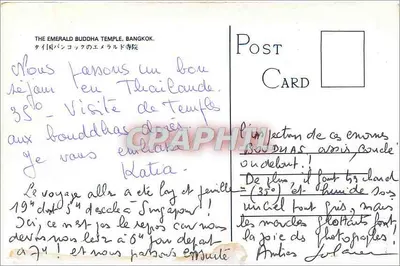 THE EMERALD BUDDHA TEMPLE, BANGKOK.
タイ国バンコックのエメラルド寺院
POST
CARD
Nous passons un bon
séjour en Thaïlande.
35° - Visite de temples
aux bouddhas dorés.
Je vous embrasse
Katia.
Le voyage aller a été long et
19h dont 5h d'escale à Singapour!
Ici, ce n'est pas le repos car nous
devons nous lever à 6h pour départ
à 7h! et nous passons
l'inspection de ces énormes
BOUDHAS assis, couché
ou debout!
De plus, il faut très chaud
(35°) et humide sous
un ciel gris, mais
les marchés flottants font
la joie des photographes!
CPARAMA